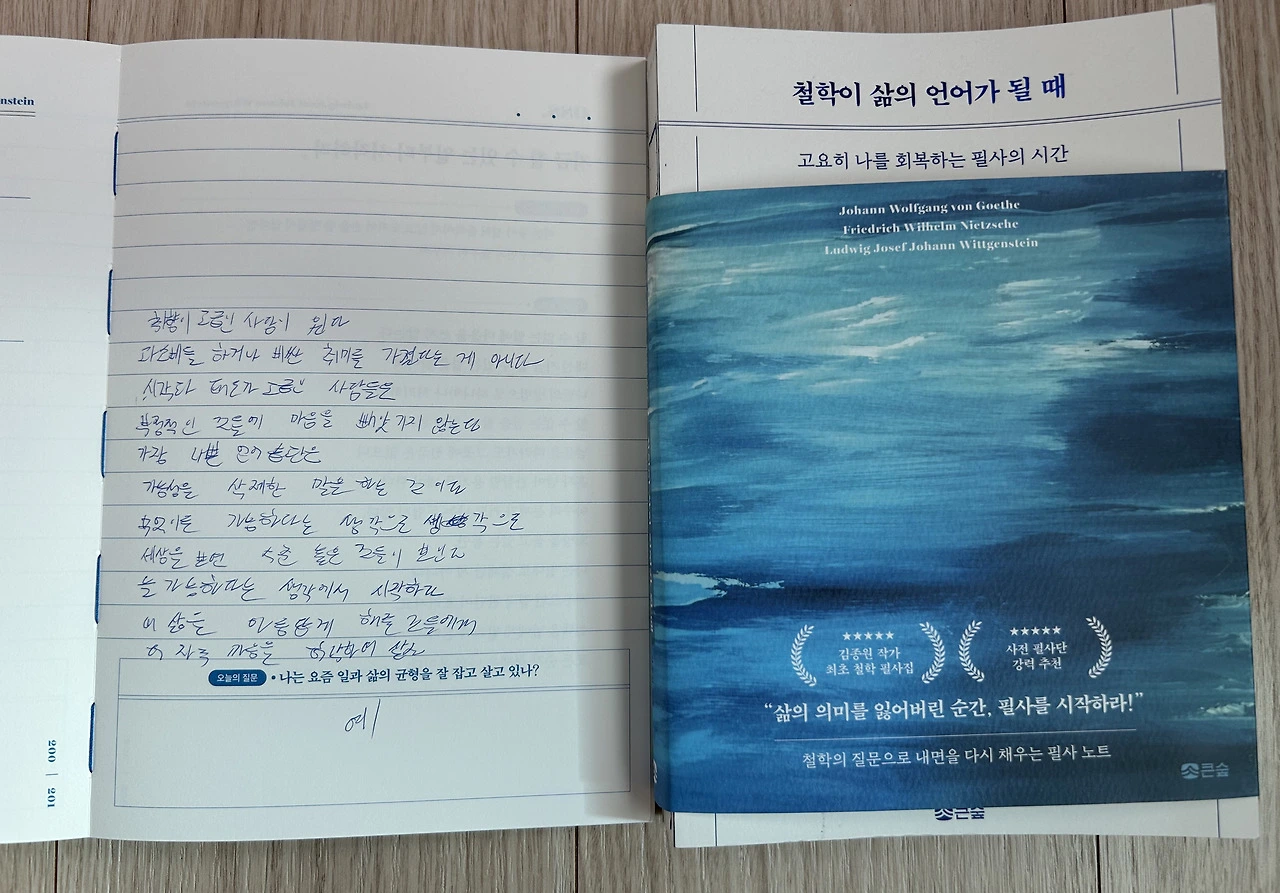 nstein
취향이 고급인 사람이 된다
과소비를 하거나 비싼 취미를 가졌다는 게 아니다
시각과 태도가 고급인 사람들은
부정적인 것들에 마음을 빼앗기지 않는다
가장 나쁜 언어 습관은
가능성을 삭제한 말을 하는 것이다
무엇이든 가능하다는 생각으로 각으로
세상을 보면 수준 높은 것들이 보인다
늘 가능하다는 생각에서 시작하라
내 삶은
오늘의 질문 • 나는 요즘 일과 삶의 균형을 잘 잡고 살고 있나?
예!
200 | 201
철학이 삶의 언어가 될 때
고요히 나를 회복하는 필사의 시간
Johann Wolfgang von Goethe
Friedrich Wilhelm Nietzsche
Ludwig Josef Johann Wittgenstein
★★★★★
김종원 작가
최초 철학 필사집
★★★★★
사전 필사단
강력 추천
“삶의 의미를 잃어버린 순간, 필사를 시작하라!”
철학의 질문으로 내면을 다시 채우는 필사 노트
큰숲
큰숲